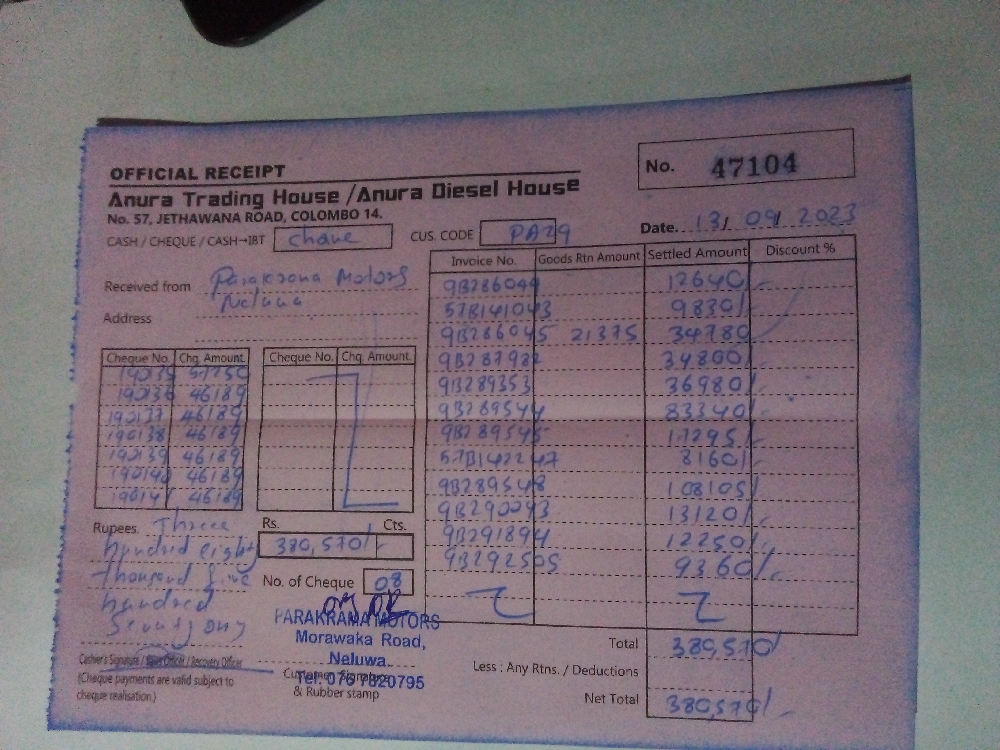 OFFICIAL RECEIPT
No. 47104
Anura Trading House /Anura Diesel House
No. 57, JETHAWANA ROAD, COLOMBO 14.
Date. 13/ 09/ 2023
CASH / CHEQUE / CASH→IBT
CUS. CODE PA29
Received from Motors
Address
Cheque No. Chq. Amount
190135 57250
190136 46189
190137 46189
190138 46189
190139 46189
190140 46189
190141 46189
Cheque No. Chq. Amount
Invoice No. Goods Rtn Amount Settled Amount Discount %
9B286049 12640/-
57B141043 9830/-
9B286045 21375 34780
9B287982 34800/-
9B289353 36980/-
9B289544 83340/-
9B289545 17295/-
57B142247 8160/-
9B289548 108105/-
9B290093 13120/-
9B291894 12250/-
9B292505 9360/-
Rupees. Three
hundred eighty
thousand five
hundred
Rs. Cts.
380,570/-
No. of Cheque 08
PARAKRAMA MOTORS
Morawaka Road,
Neluwa.
Tel: 076 7820795
Customer Signature
& Rubber stamp
Cashier's Signature / Sales Officer / Recovery Officer
(Cheque payments are valid subject to
cheque realisation.)
Total 380,570/-
Less : Any Rtns. / Deductions
Net Total 380,570/-